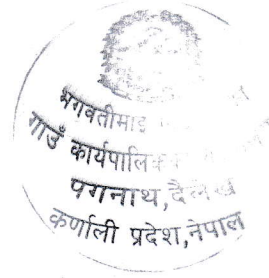 भगवतीमाई
गाउँ कार्यपालिका
पगनाथ,दैलेख
कर्णाली प्रदेश,नेपाल